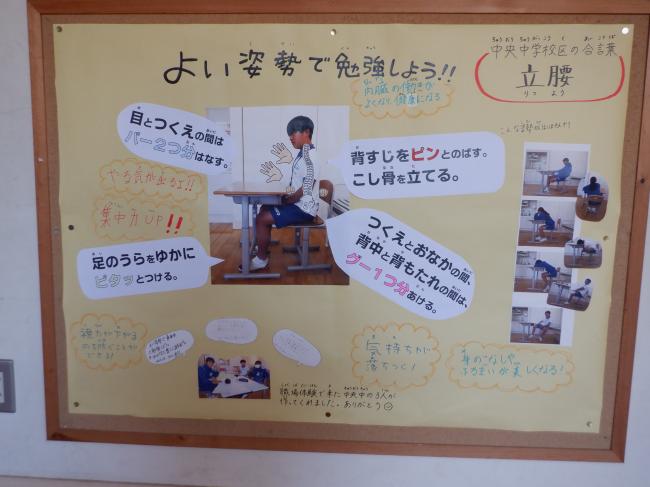 よい姿勢で勉強しよう!!
中央中学校区の合言葉
立腰
りつよう
内臓の働きが
よくなり、健康になる
目とつくえの間は
パー2つ分はなす。
背すじをピンとのばす。
こし骨を立てる。
やる気が出るよ!!
集中力UP!!
足のうらをゆかに
ピタッとつける。
つくえとおなかの間、
背中と背もたれの間は、
グー1つ分あける。
視力が下がる
のを防ぐことが
できる!
気持ちが
落ちつく!
身のこなしや、
ふるまいが美しくなる!
職場体験で来た中央中の3人が
作ってくれました。ありがとう